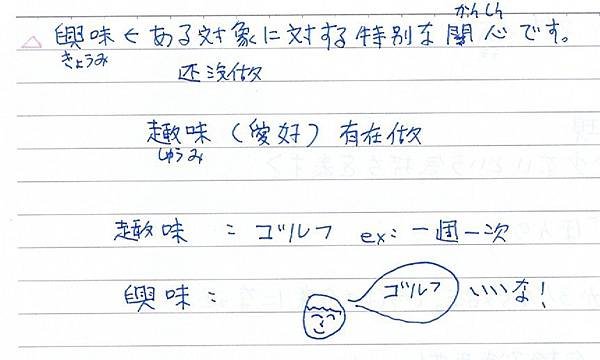 かんしん
△ 興味 < ある対象に対する特別な関心です。
きょうみ
还没做
趣味 (愛好) 有在做
しゅうみ
趣味 : ゴルフ ex: 一周一次
興味 : ゴルフ いいな!